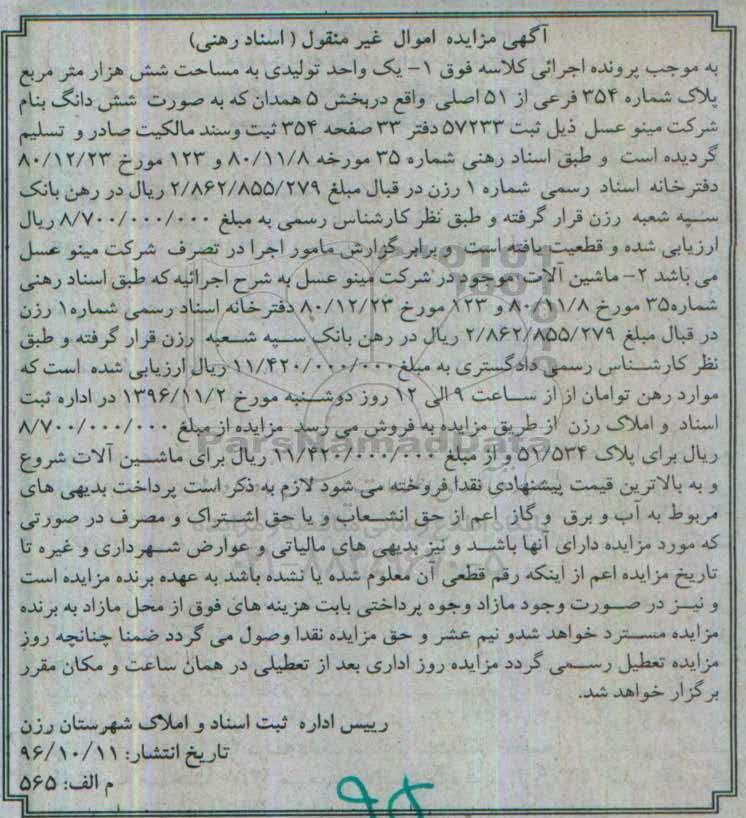 آگهی مزایده اموال غیر منقول (اسناد رهنی)
به موجب پرونده اجرائی کلاسه فوق ۱- یک واحد تولیدی به مساحت شش هزار متر مربع
پلاک شماره ۳۵۴ فرعی از ۵۱ اصلی واقع دربخش ۵ همدان که به صورت شش دانگ بنام
شرکت مینو عسل ذیل ثبت ۵۷۲۳۳ دفتر ۳۳ صفحه ۳۵۴ ثبت وسند مالکیت صادر و تسلیم
گردیده است و طبق اسناد رهنی شماره ۳۵ مورخه ۸۰/۱۱/۸ و ۱۲۳ مورخ ۸۰/۱۲/۲۳
دفترخانه اسناد رسمی شماره ۱ رزن در قبال مبلغ ۲/۸۶۲/۸۵۵/۲۷۹ ریال در رهن بانک
سپه شعبه رزن قرار گرفته و طبق نظر کارشناس رسمی به مبلغ ۸/۷۰۰/۰۰۰/۰۰۰ ریال
ارزیابی شده و قطعیت یافته است و برابر گزارش مامور اجرا در تصرف شرکت مینو عسل
می باشد ۲- ماشین آلات موجود در شرکت مینو عسل به شرح اجرائیه که طبق اسناد رهنی
شماره۳۵ مورخ ۸۰/۱۱/۸ و ۱۲۳ مورخ ۸۰/۱۲/۲۳ دفترخانه اسناد رسمی شماره۱ رزن
در قبال مبلغ ۲/۸۶۲/۸۵۵/۲۷۹ ریال در رهن بانک سپه شعبه رزن قرار گرفته و طبق
نظر کارشناس رسمی دادگستری به مبلغ ۱۱/۴۲۰/۰۰۰/۰۰۰ ریال ارزیابی شده است که
موارد رهن توامان از از ساعت ۹ الی ۱۲ روز دوشنبه مورخ ۱۳۹۶/۱۱/۲ در اداره ثبت
اسناد و املاک رزن از طریق مزایده به فروش می رسد مزایده از مبلغ ۸/۷۰۰/۰۰۰/۰۰۰
ریال برای پلاک ۵۱/۵۳۴ و از مبلغ ۱۱/۴۲۰/۰۰۰/۰۰۰ ریال برای ماشین آلات شروع
و به بالاترین قیمت پیشنهادی نقدا فروخته می شود لازم به ذکر است پرداخت بدیهی های
مربوط به آب و برق و گاز اعم از حق انشعاب و یا حق اشتراک و مصرف در صورتی
که مورد مزایده دارای آنها باشد و نیز بدیهی های مالیاتی و عوارض شهرداری و غیره تا
تاریخ مزایده اعم از اینکه رقم قطعی آن معلوم شده یا نشده باشد به عهده برنده مزایده است
و نیز در صورت وجود مازاد وجوه پرداختی بابت هزینه های فوق از محل مازاد به برنده
مزایده مسترد خواهد شدو نیم عشر و حق مزایده نقدا وصول می گردد ضمنا چنانچه روز
مزایده تعطیل رسمی گردد مزایده روز اداری بعد از تعطیلی در همان ساعت و مکان مقرر
برگزار خواهد شد.
رییس اداره ثبت اسناد و املاک شهرستان رزن
تاریخ انتشار: ۹۶/۱۰/۱۱
م الف: ۵۶۵
ParsNamadData